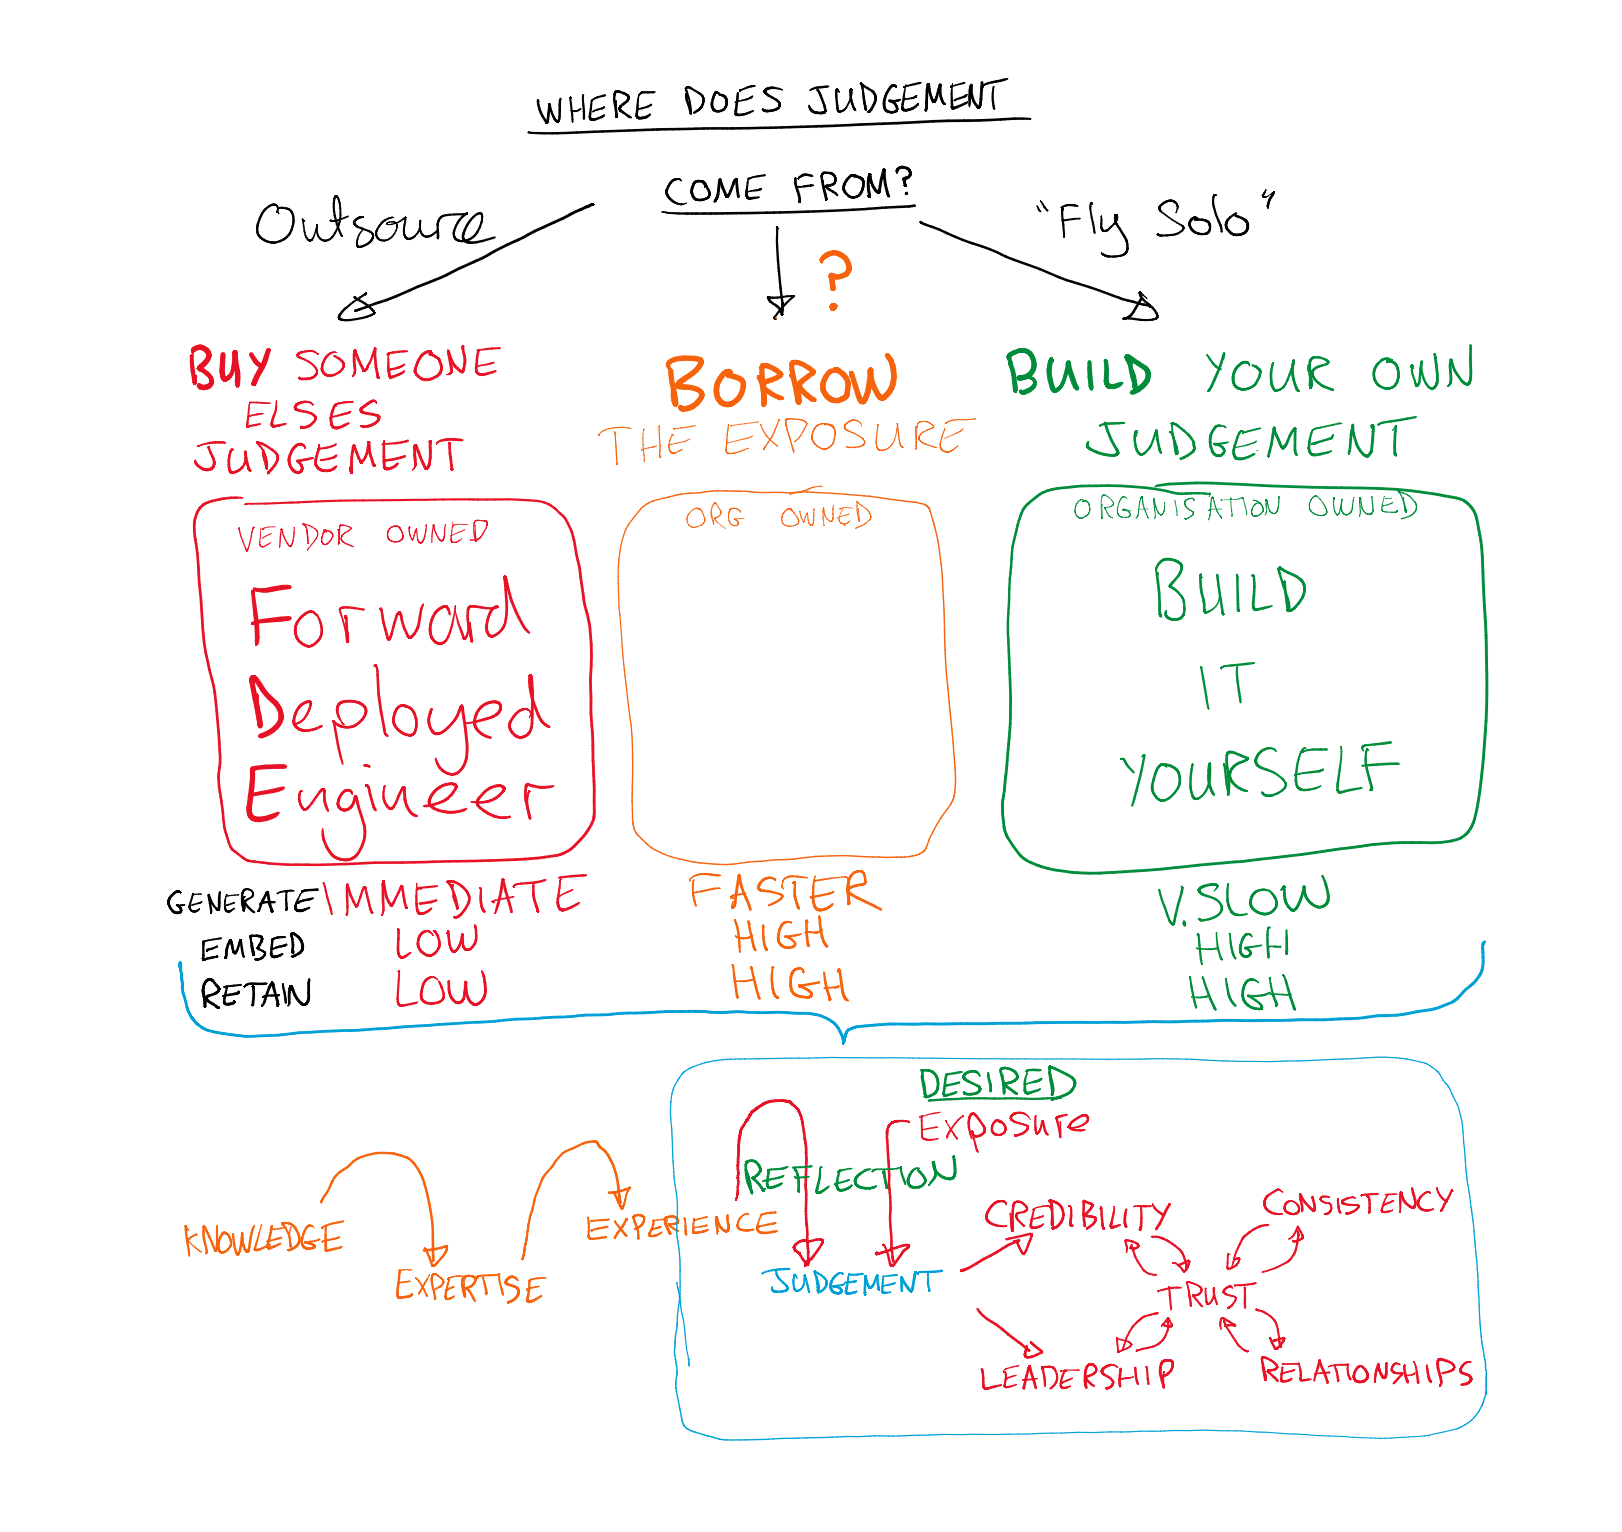 WHERE DOES JUDGEMENT
COME FROM?
Outsource
"Fly Solo"
?
BUY SOMEONE
ELSES
JUDGEMENT
BORROW
THE EXPOSURE
BUILD YOUR OWN
JUDGEMENT
VENDOR OWNED
Forward
Deployed
Engineer
ORG OWNED
ORGANISATION OWNED
BUILD
IT
YOURSELF
GENERATE IMMEDIATE FASTER V.SLOW
EMBED LOW HIGH HIGH
RETAIN LOW HIGH HIGH
DESIRED
Exposure
REFLECTION
KNOWLEDGE
EXPERTISE
EXPERIENCE
JUDGEMENT
CREDIBILITY
CONSISTENCY
TRUST
LEADERSHIP
RELATIONSHIPS